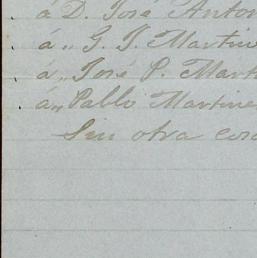 á D. José Anton
á „ G. J. Martin
á „ José P. Mart
á „ Pablo Martine
Sin otra cosa